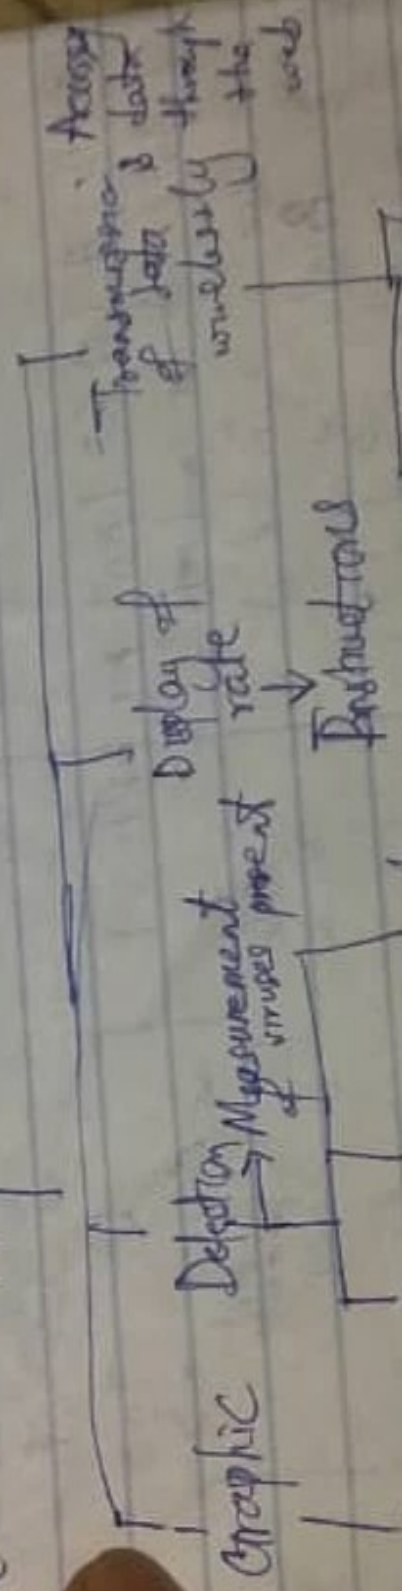 Graphic
Detection
→ Measurement
of viruses present
Display of
rate
↓
Instructions
Transmission
of data
wirelessly
&
Access
data
through
the
web